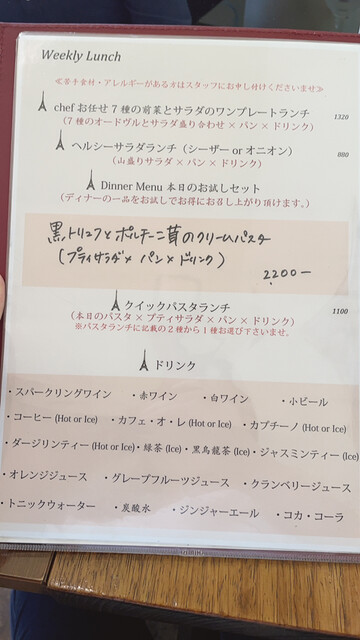 Weekly Lunch
≪苦手食材・アレルギーがある方はスタッフにお申し付けくださいませ≫
chef お任せ 7 種の前菜とサラダのワンプレートランチ 1320
(7 種のオードヴルとサラダ盛り合わせ × パン × ドリンク)
ヘルシーサラダランチ (シーザー or オニオン) 880
(山盛りサラダ × パン × ドリンク)
Dinner Menu 本日のお試しセット
(ディナーの一品をお試しでお得にお召し上がり頂けます。)
黒トリュフとポルチーニ茸のクリームパスタ
(プティサラダ× パン × ドリンク)
2200-
クイックパスタランチ 1100
(本日のパスタ × プティサラダ × パン × ドリンク)
※パスタランチに記載の 2 種から 1 種お選び下さいませ。
ドリンク
・スパークリングワイン ・赤ワイン ・白ワイン ・小ビール
・コーヒー (Hot or Ice) ・カフェ・オ・レ (Hot or Ice) ・カプチーノ (Hot or Ice)
・ダージリンティー (Hot or Ice)・緑茶 (Ice)・黒烏龍茶 (Ice)・ジャスミンティー (Ice)
・オレンジジュース ・グレープフルーツジュース ・クランベリージュース
・トニックウォーター ・炭酸水 ・ジンジャーエール ・コカ・コーラ